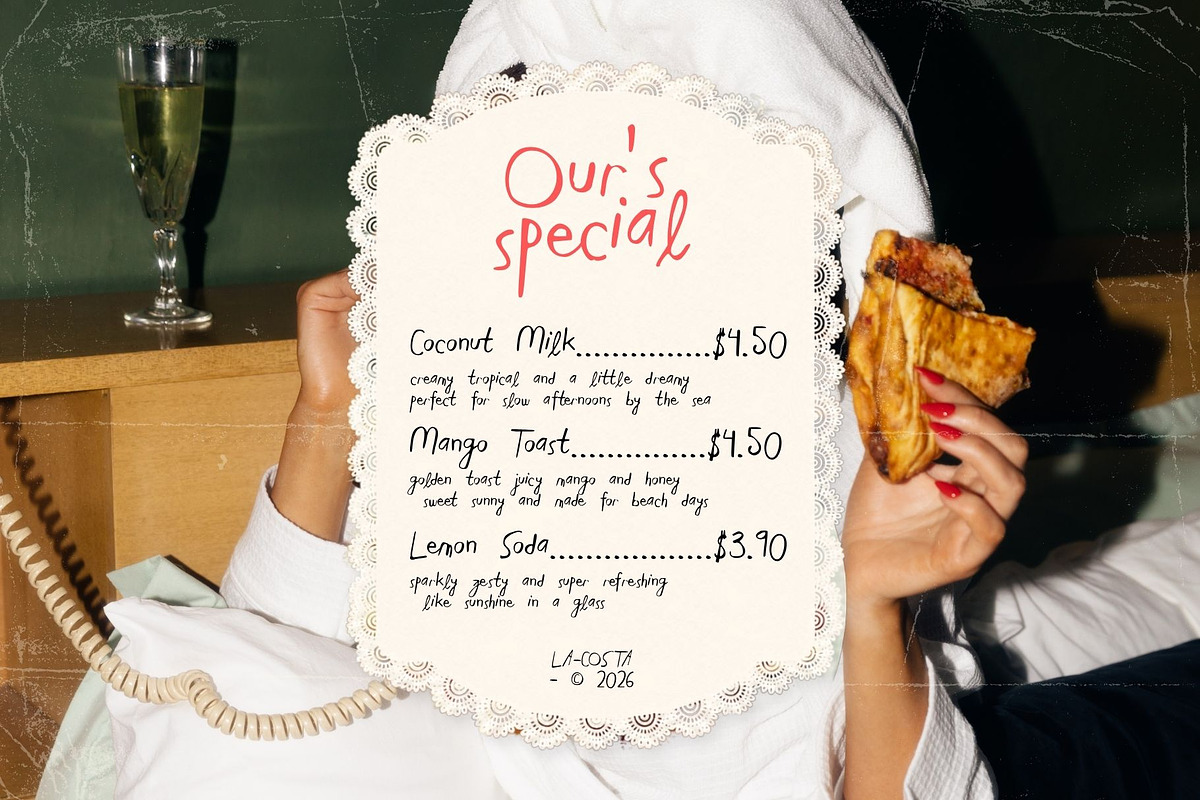 Our's
special
Coconut Milk...............$4.50
creamy tropical and a little dreamy
perfect for slow afternoons by the sea
Mango Toast...............$4.50
golden toast juicy mango and honey
sweet sunny and made for beach days
Lemon Soda..................$3.90
sparkly zesty and super refreshing
like sunshine in a glass
LA-COSTA
- © 2026